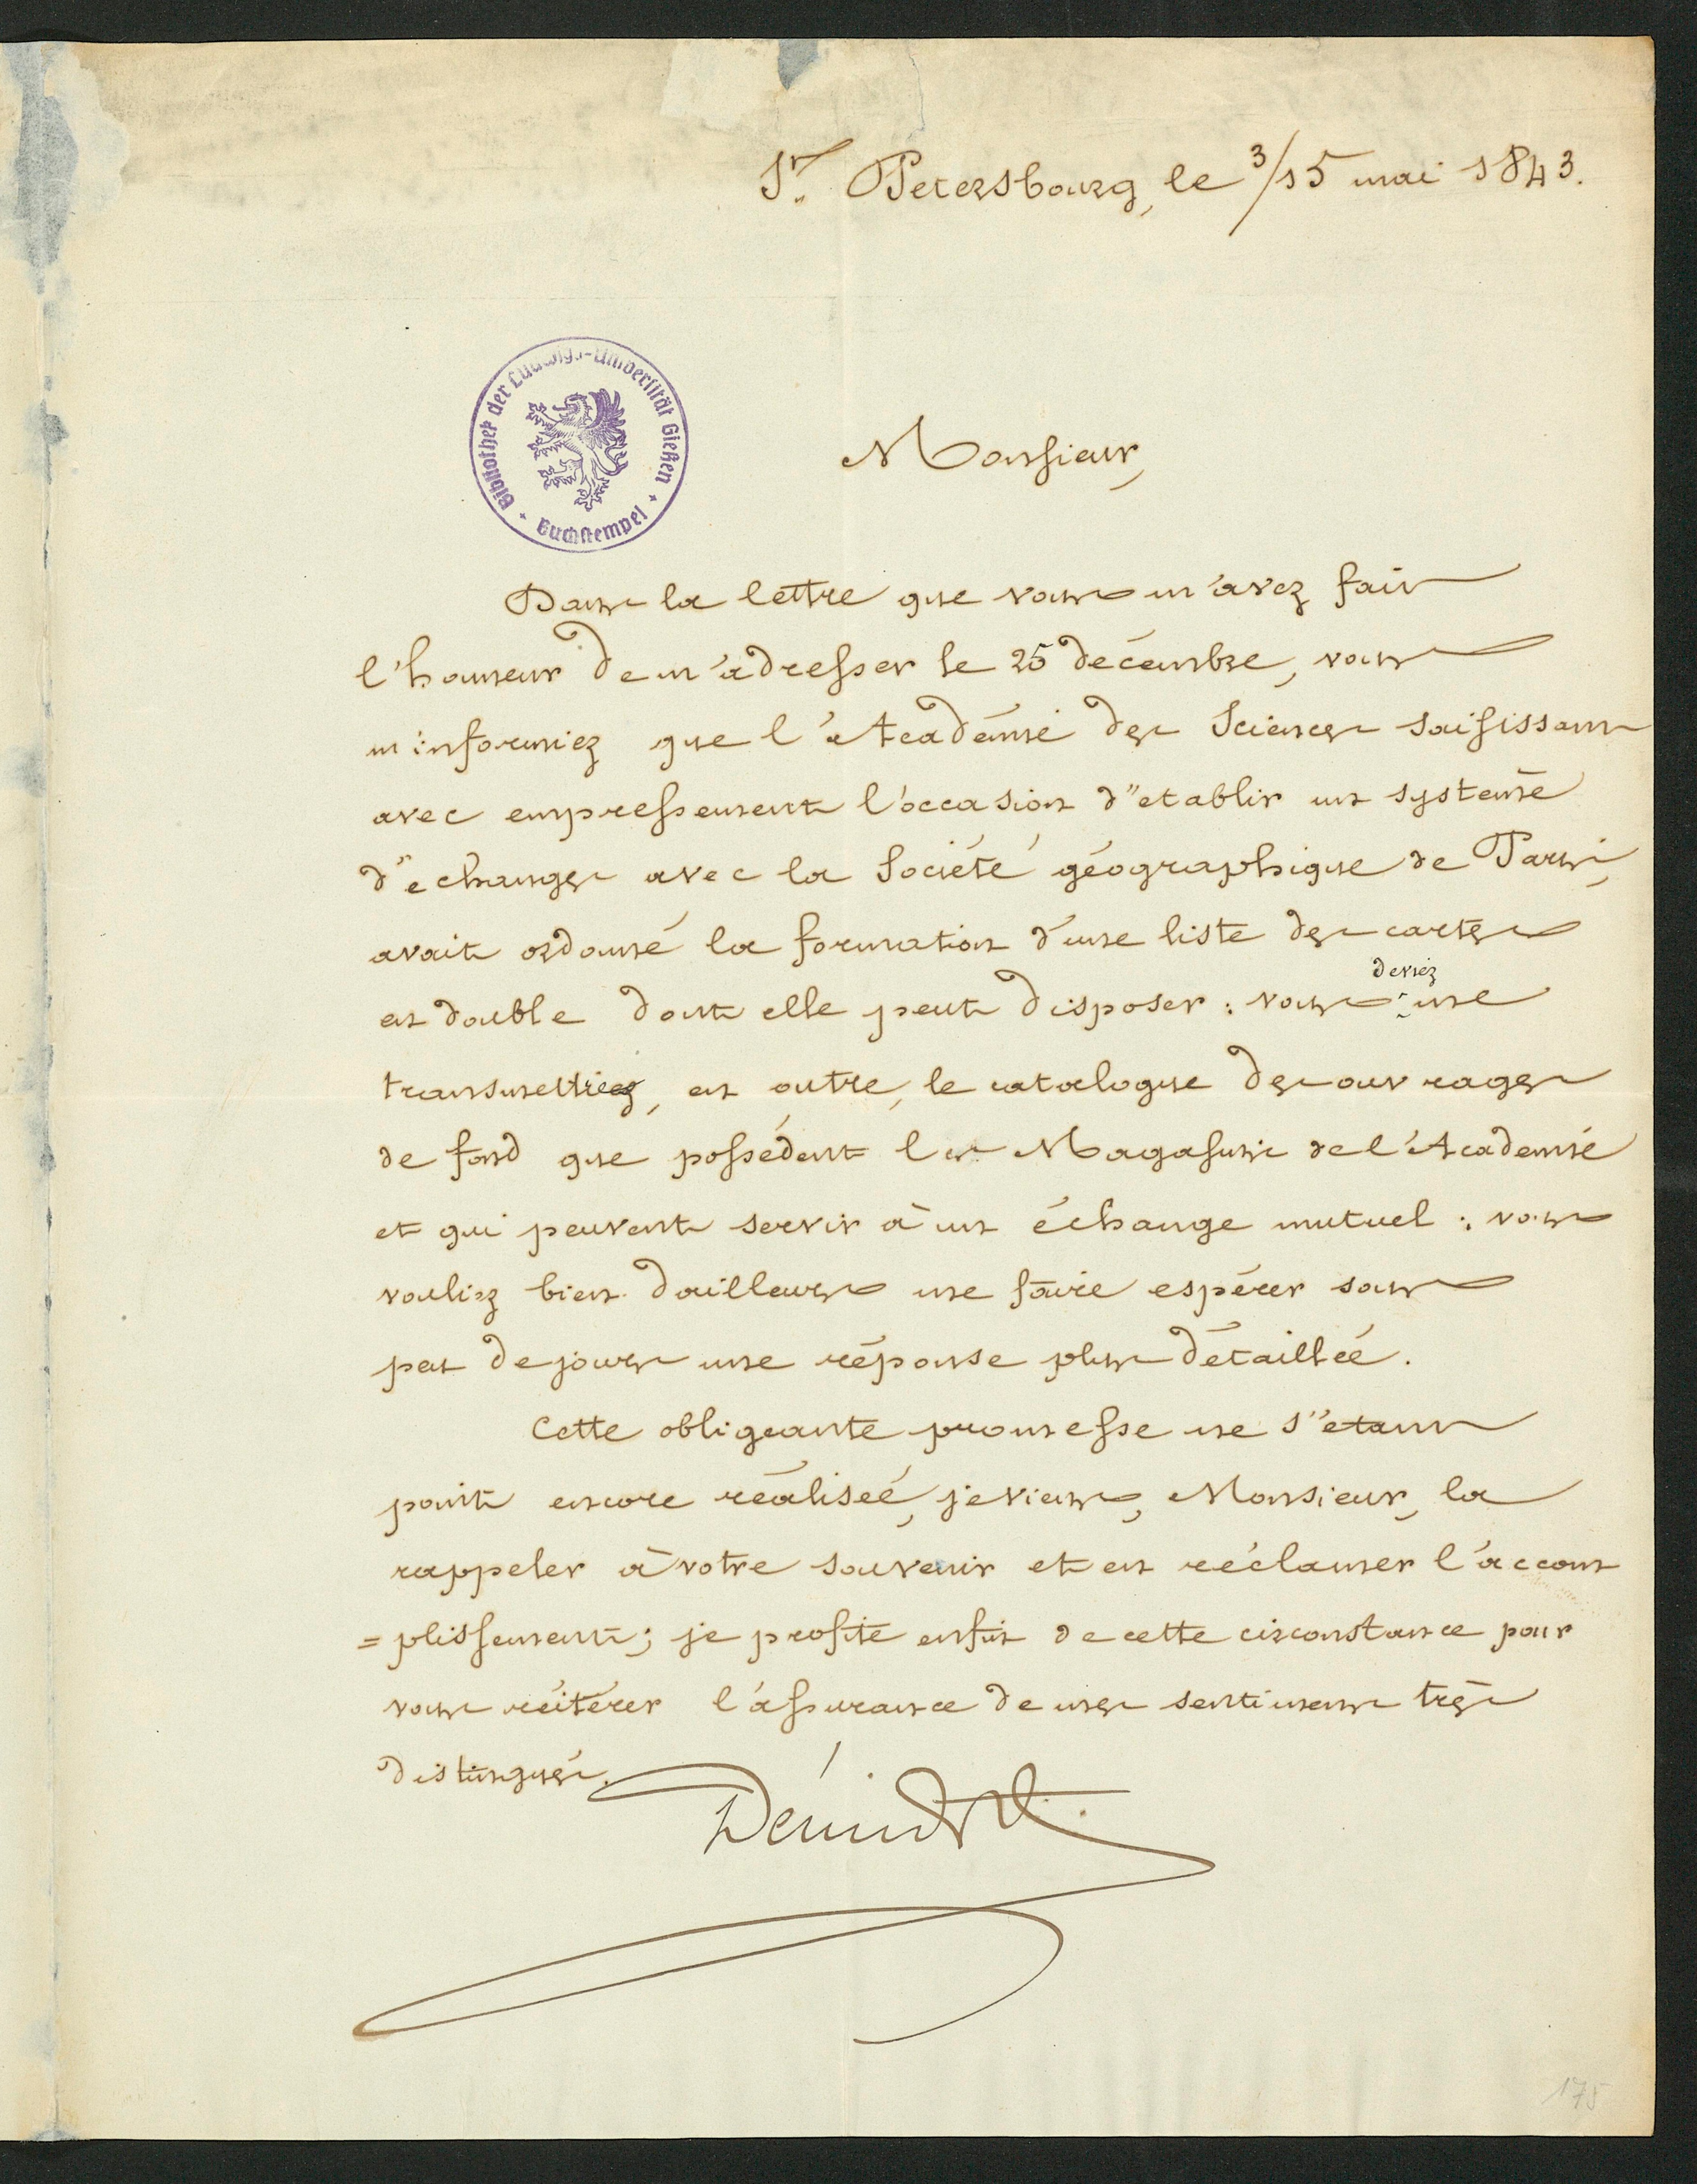 St. Petersbourg, le 3/15 mai 1843.
Bibliothek der Ludwigs-Universität Gießen
Buchstempel
Monsieur,
Dans la lettre que vous m'avez fait
l'honneur de m'adresser le 25 décembre, vous
m'informiez que l'Académie des Sciences saisissant
avec empressement l'occasion d'etablir un système
d'echanges avec la Société géographique de Paris,
avait ordonné la formation d'une liste des cartes
deviez
en double dont elle peut disposer: vous me
transmettriez, en outre, le catalogue des ouvrages
de fond que possédent les Magasins de l'Academie
et qui peuvent servir à un échange mutuel: vous
vouliez bien d'ailleurs me faire espérer sous
peu de jours une réponse plus détaillée.
Cette obligeante promesse ne s'etant
point encore réalisée, je viens, Monsieur, la
rappeler à votre souvenir et en réclamer l'accom
=plissement; je profite enfin de cette circonstance pour
vous réitérer l'assurance de mes sentimens très
distingués.
Démidoff
175